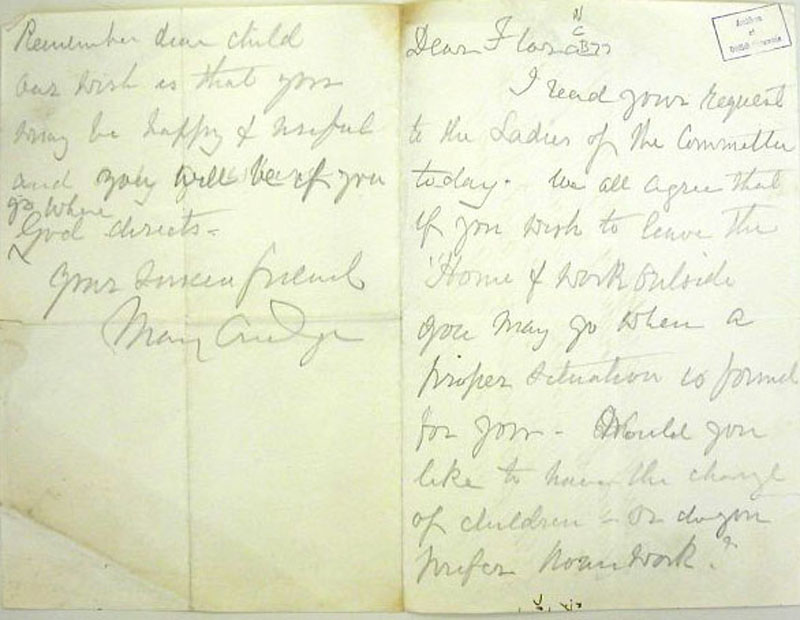 Dear Flora
I read your request
to the Ladies of the Committee
today. We all agree that
if you wish to leave the
"Home & work outside
you may go when a
proper situation is found
for you - Would you
like to have the charge
of children - or do you
prefer housework?
Remember dear child
our wish is that you
may be happy & useful
and you will be if you
go where
God directs -
Your sincere friend
Mary